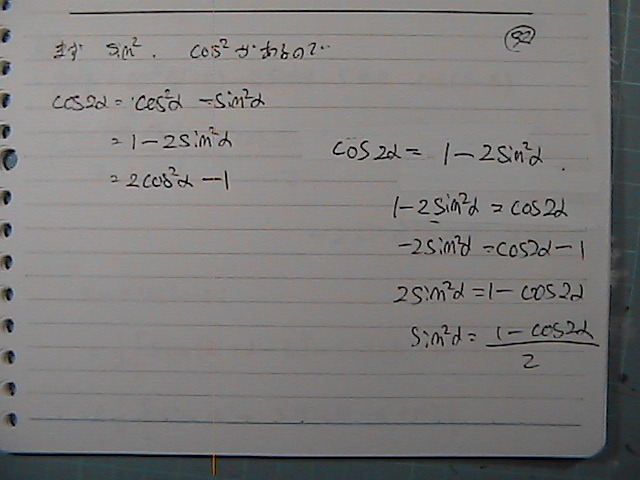 まず sin². cos² があるので…
52
cos2α = cos²α - sin²α
= 1 - 2sin²α
= 2cos²α - 1
cos2α = 1 - 2sin²α.
1 - 2sin²α = cos2α
-2sin²α = cos2α - 1
2sin²α = 1 - cos2α
sin²α = 1 - cos2α
2